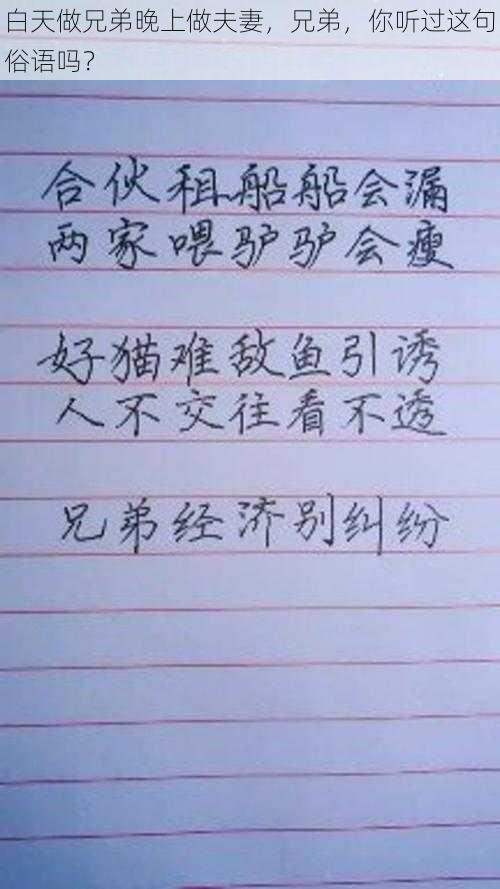 白天做兄弟晚上做夫妻，兄弟，你听过这句
俗语吗？
合伙租船船会漏
两家喂驴驴会瘦
好猫难敌鱼引诱
人不交往看不透
兄弟经济别纠纷